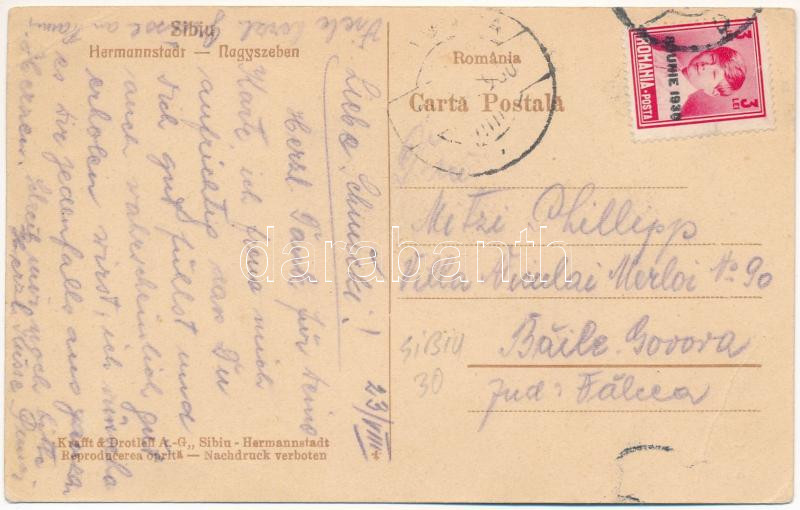 Sibiu
Hermannstadt — Nagyszeben
România
Carta Postala
3 3
LEI
ROMANIA-POSTA
8 IUNIE 1930
23/VIII
Liebe Schwester!
Herzl. Dank für Deine
Karte ich freue mich
aufrichtig dass Du
Dich gut fühlst und
auch wahrscheinlich gut
erholen wirst, ich wünsche
es Dir jedenfalls aus ganzem
Herzen. Schreib mir noch bitte
Herzl. Küsse
Viele herzl.
Mitzi Phillipp
Villa Niculai Merloi No 90
Băile-Govora
Jud: Vâlcea
SiBiU
30
Krafft & Drotleff A.-G., Sibiu - Hermannstadt
Reproducerea oprită — Nachdruck verboten
darabanth